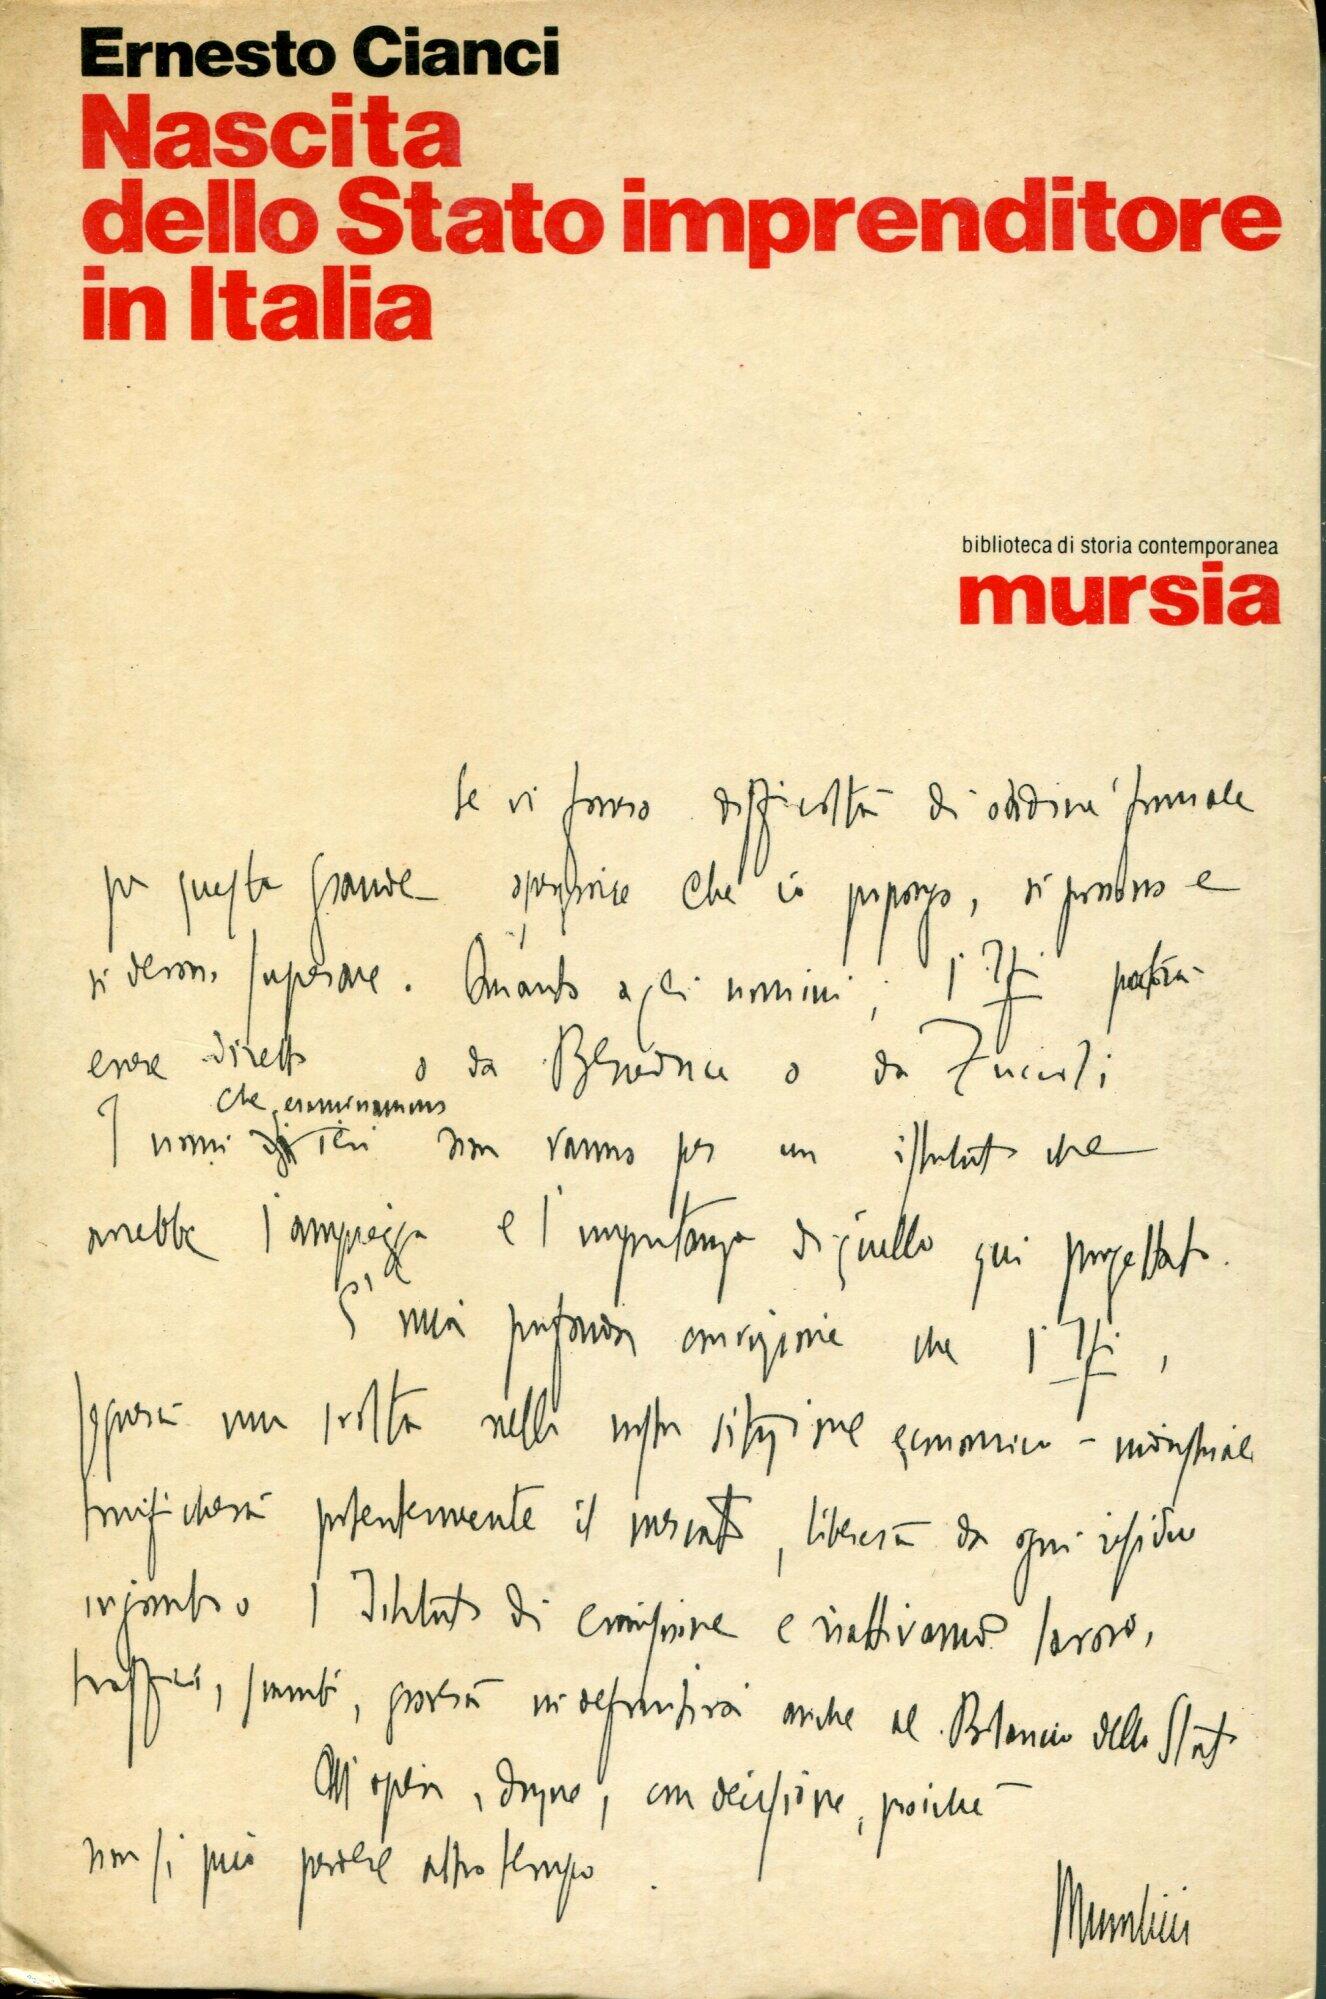 Ernesto Cianci
Nascita
dello Stato imprenditore
in Italia
biblioteca di storia contemporanea
mursia
Se vi fossero difficoltà di ordine formale
per questa grande operazione che io propongo, si possono e
si devono superare. Quanto agli uomini, l'Ifi potrà
essere diretto o da Beneduce o da
che esaminammo
I nomi non vanno per un istituto che
avrebbe l'ampiezza e l'importanza di quello qui progettato.
È mia profonda convinzione che l'Ifi,
segnerà una svolta nella nostra situazione economico-industriale
tonificherà potentemente il mercato, libererà da ogni residuo
ingombro l'Istituto di emissione e riattivando lavoro,
traffici, scambi, gioverà in definitiva anche al Bilancio dello Stato
All'opera, dunque, con decisione, poiché
non si può perdere altro tempo.
Mussolini